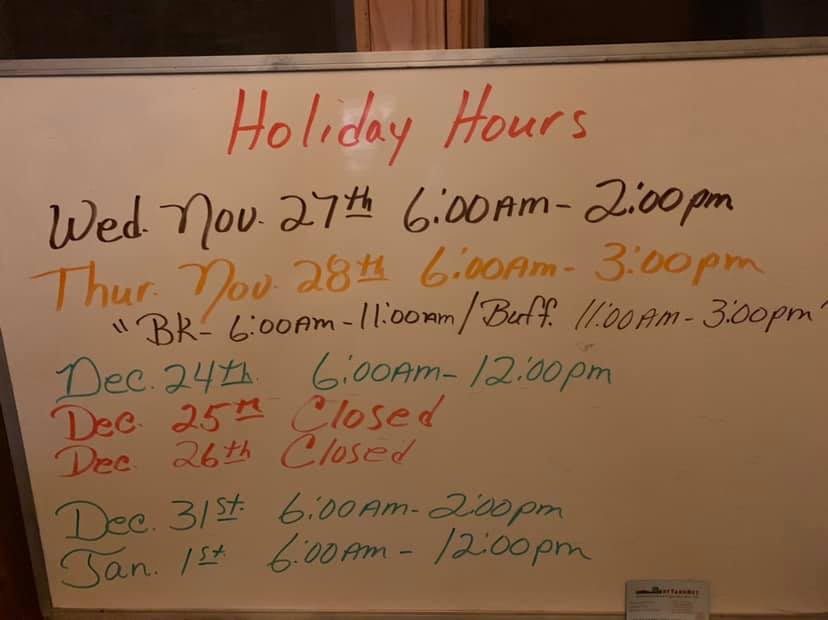 Holiday Hours
Wed. Nov. 27th 6:00AM - 2:00pm
Thur. Nov. 28th 6:00AM - 3:00pm
"BK- 6:00AM - 11:00am / Buff. 11:00AM - 3:00pm"
Dec. 24th. 6:00AM - 12:00pm
Dec. 25th Closed
Dec. 26th Closed
Dec. 31st. 6:00AM - 2:00pm
Jan. 1st. 6:00AM - 12:00pm